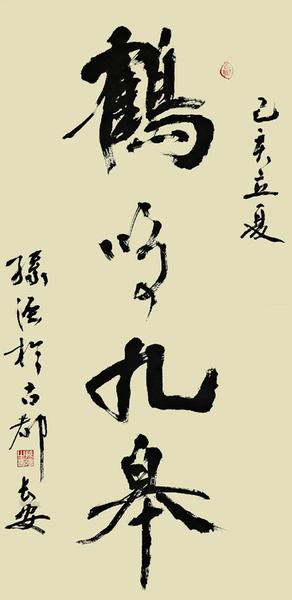 己亥立夏
鶴鳴九皋
孫於古都
长安